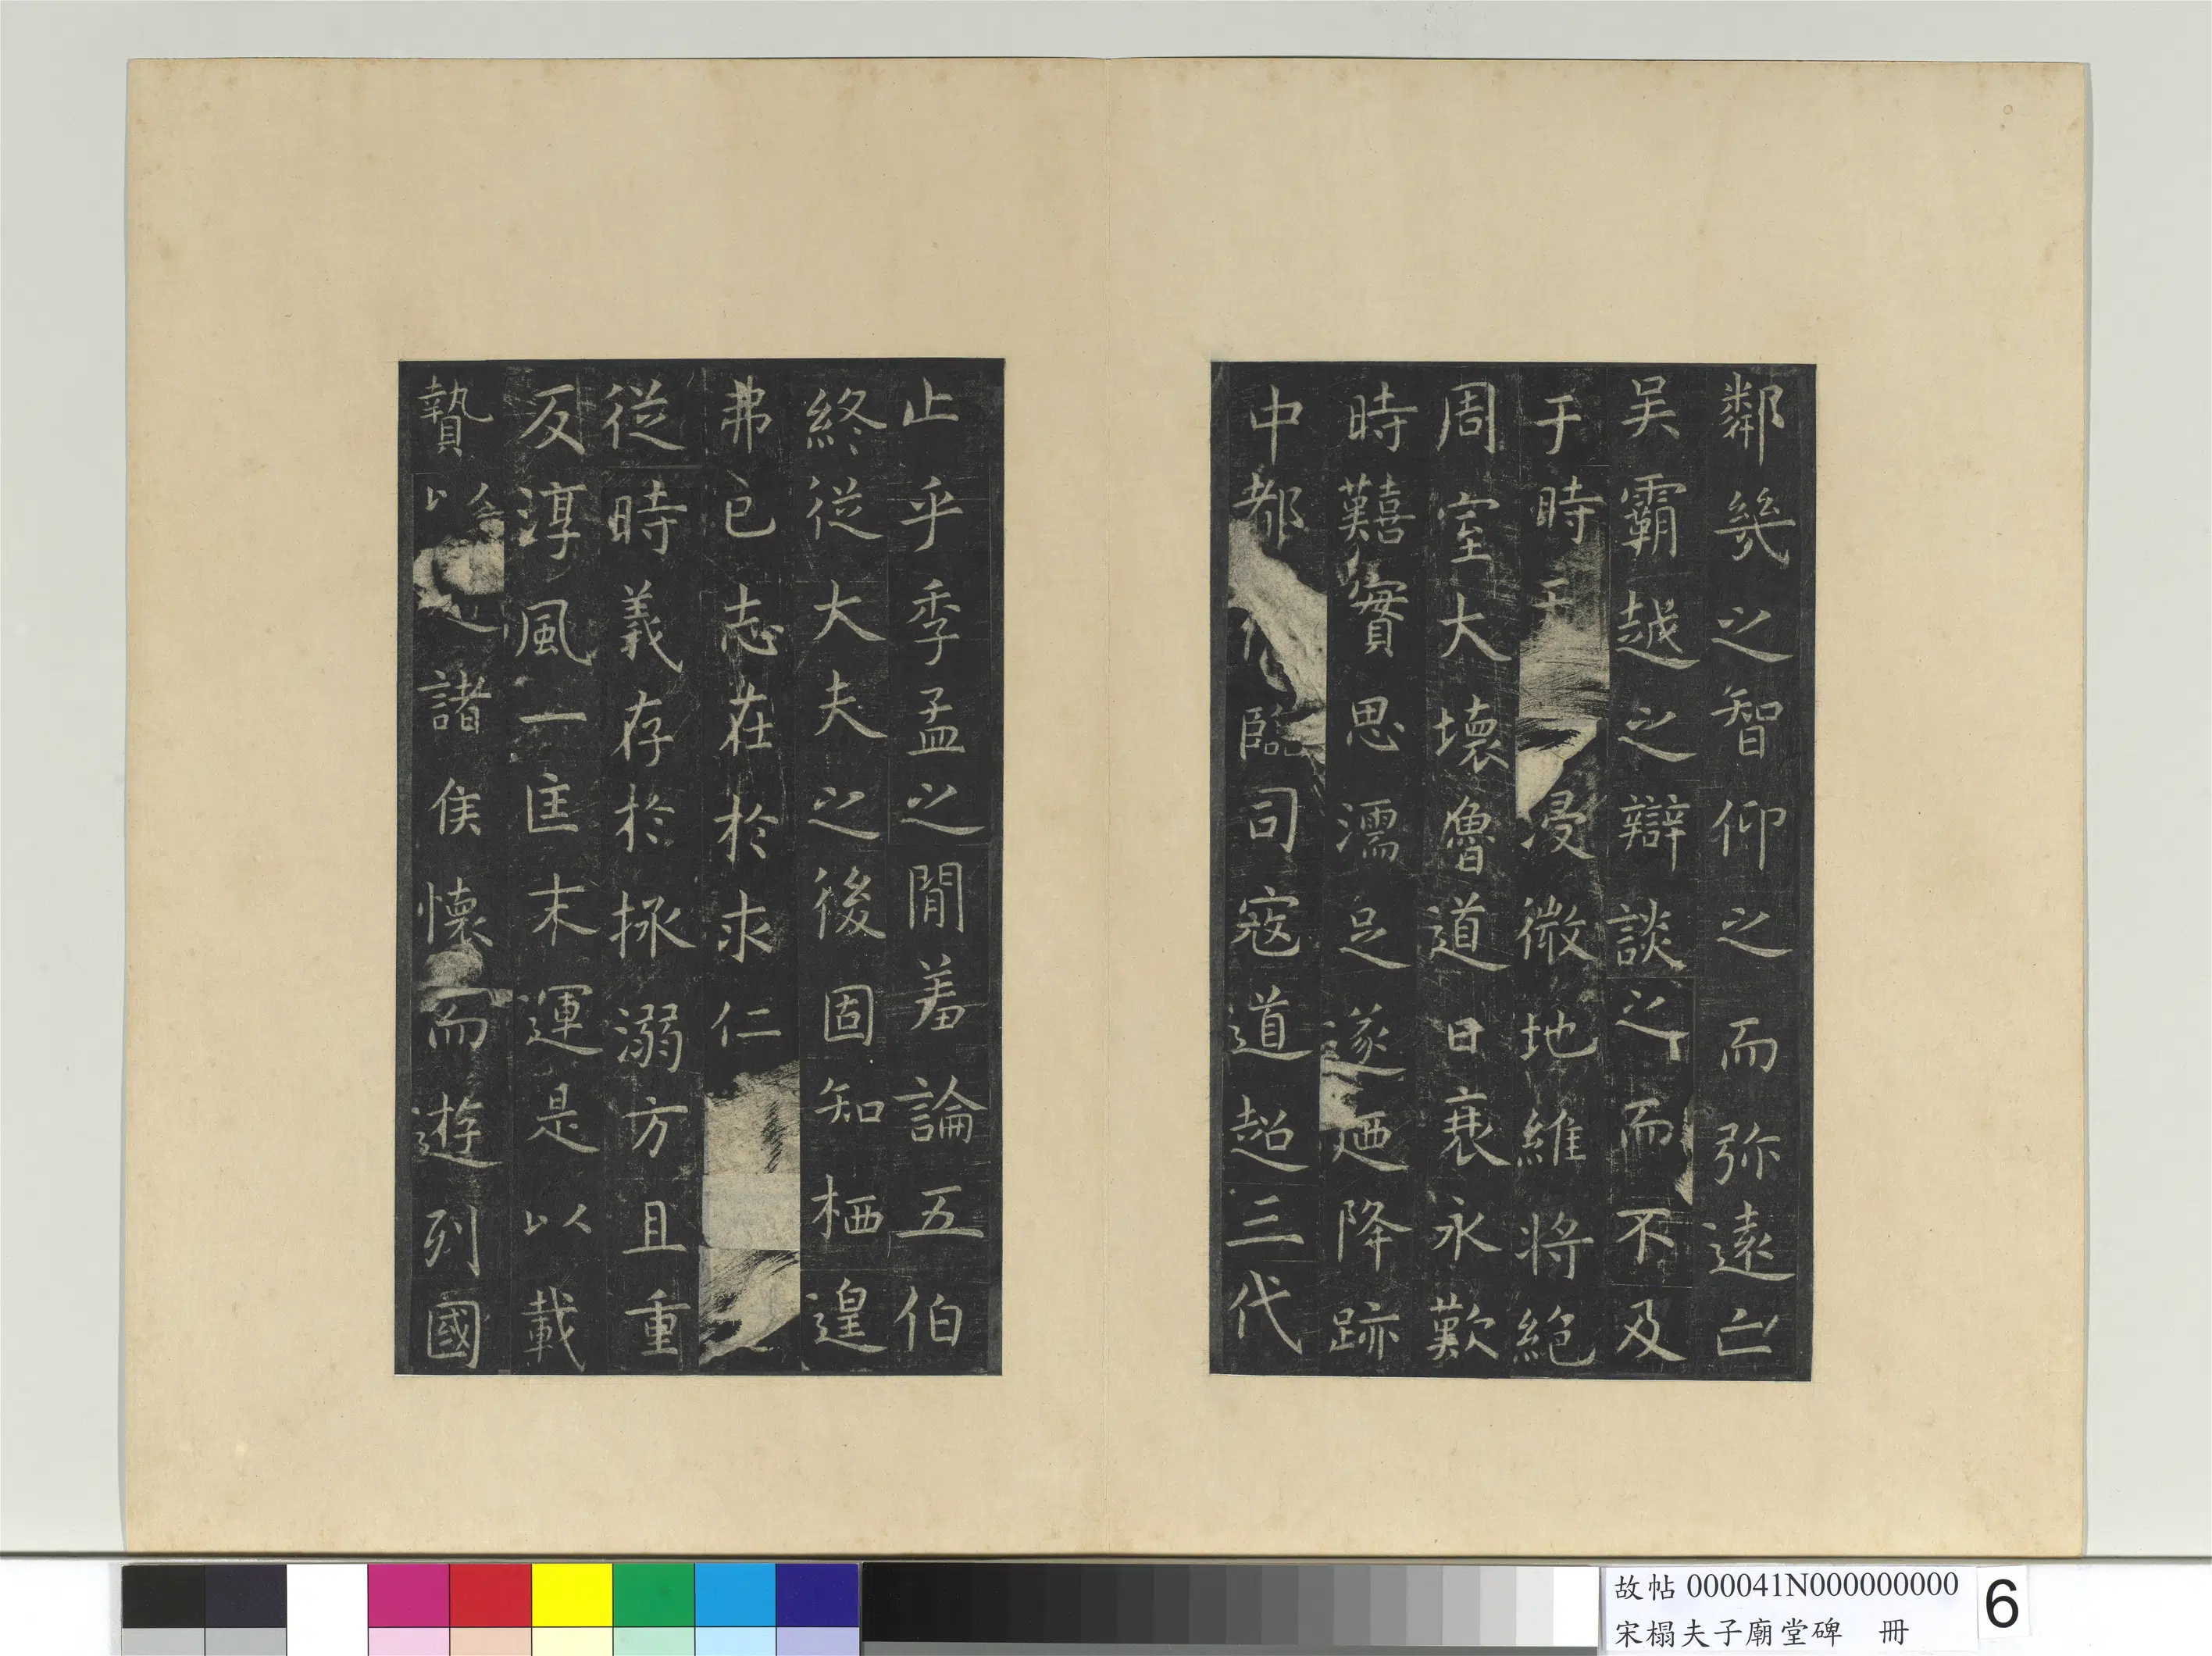 鄰幾之智仰之而弥遠亡
吴霸越之辯談之而不及
于時浸微地維將絕
周室大壞魯道日衰永歎
時囏實思濡足遂廼降跡
中都俯臨司寇道超三代
止乎季孟之間羞論五伯
終從大夫之後固知栖遑
弗已志在於求仁
從時義存於拯溺方且重
反淳風一匡末運是以載
贄以適諸侯懷而遊列國
故帖 000041N000000000
宋榻夫子廟堂碑 冊
6